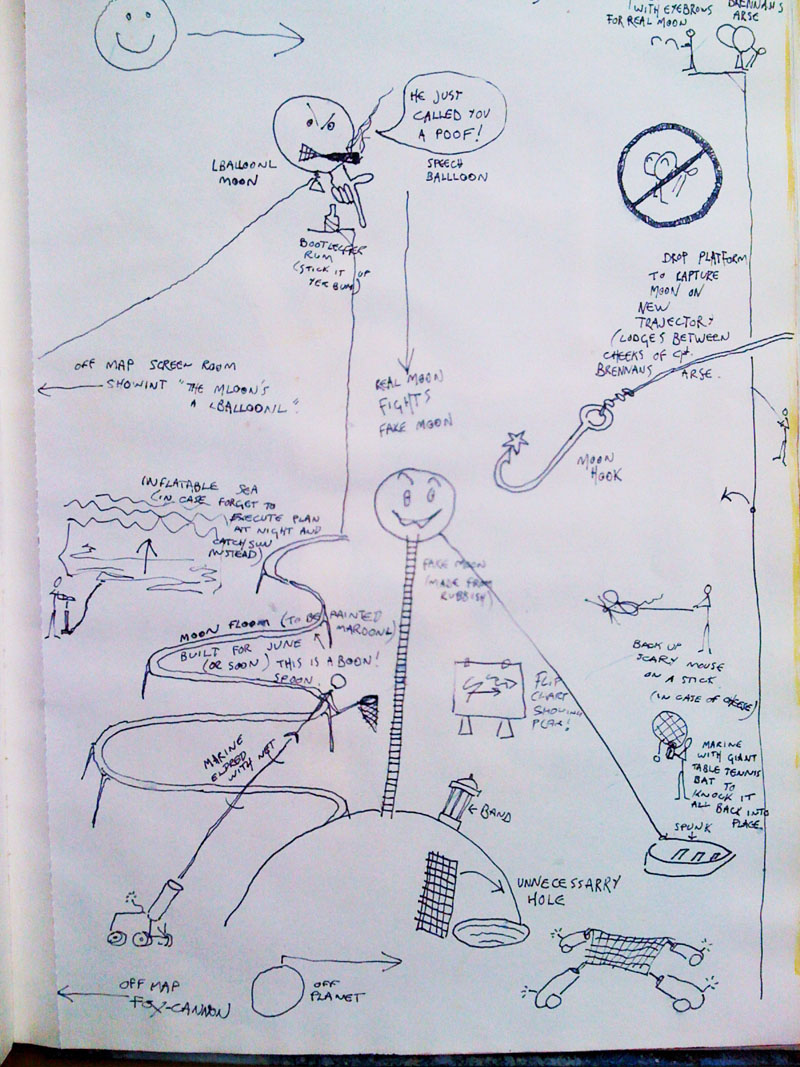 WITH EYEBROWS
FOR REAL MOON
BRENNAN'S
ARSE
HE JUST
CALLED YOU
A POOF!
SPEECH
BALLLOON
LBALLOONL
MOON
BOOTLEGGER
RUM
(STICK IT UP
YER BUM)
DROP PLATFORM
TO RAPTURE
MOON ON
NEW
TRAJECTORY
(LODGES BETWEEN
CHEEKS OF CPT.
BRENNANS ARSE.
OFF MAP SCREEN ROOM
SHOWINT "THE MLOON'S
A LBALLOONL".
REAL MOON
FIGHTS
FAKE MOON
MOON
HOOK
INFLATABLE SEA
(IN CASE FORGET TO
EXECUTE PLAN
AT NIGHT AND
CATCH SUN
INSTEAD)
FAKE MOON
(MADE FROM
RUBBISH)
MOON FLOOM (TO BE PAINTED
MAROONL)
BUILT FOR JUNE
(OR SOON) THIS IS A BOON!
SPOON.
FLIP
CHART
SHOWING
PLAN!
BACK UP
SCARY MOUSE
ON A STICK
(IN CASE OF CHEESE)
MARINE
ELDRED
WITH NET
MARINE
WITH GIANT
TABLE TENNIS
BAT TO
KNOCK IT
ALL BACK INTO
PLACE.
SPUNK
BAND
UNNECESSARRY
HOLE
OFF MAP
FOX-CANNON
OFF
PLANET